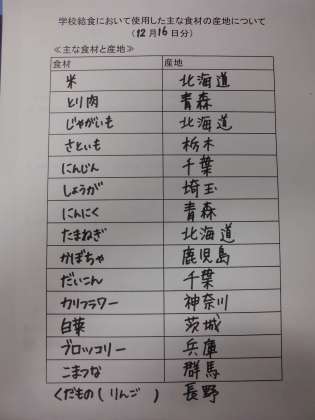 学校給食において使用した主な食材の産地について
(12月16日分)
≪主な食材と産地≫
食材 産地
米 北海道
とり肉 青森
じゃがいも 北海道
さといも 栃木
にんじん 千葉
しょうが 埼玉
にんにく 青森
たまねぎ 北海道
かぼちゃ 鹿児島
だいこん 千葉
カリフラワー 神奈川
白菜 茨城
ブロッコリー 兵庫
こまつな 群馬
くだもの(りんご ) 長野